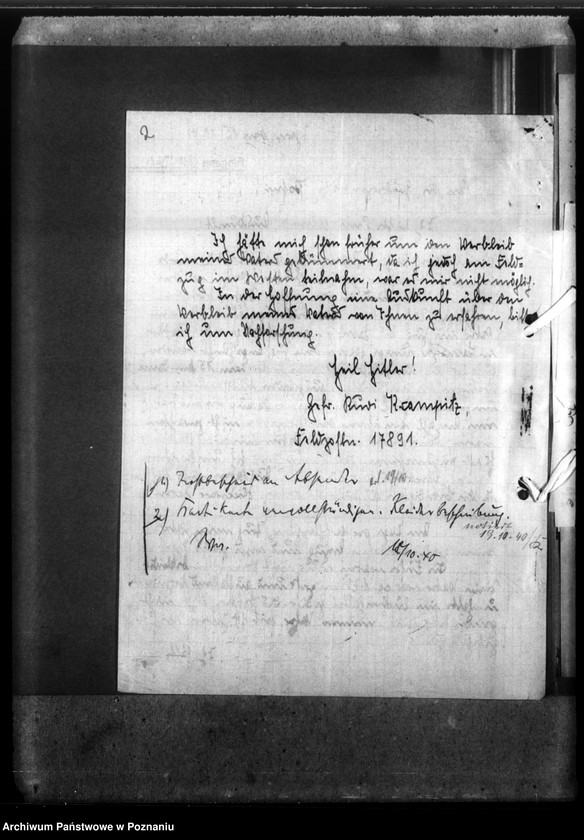 2
Ich hätte mich schon früher um den Verbleib
meines Vaters gekümmert, da ich jedoch am Feld-
zug im Westen teilnahm, war es mir nicht möglich.
In der Hoffnung eine Auskunft über den
Verbleib meines Vaters von Ihnen zu erfahren, bitte
ich um Nachforschung.
Heil Hitler!
Gefr. Rudi Krampitz,
Feldpostn. 17891.
1) an Absender 19/10
2) Karteikarte vervollständigen. Kleiderbeschreibung.
notiert
19.10.40
10.40
Archiwum Państwowe w Poznaniu